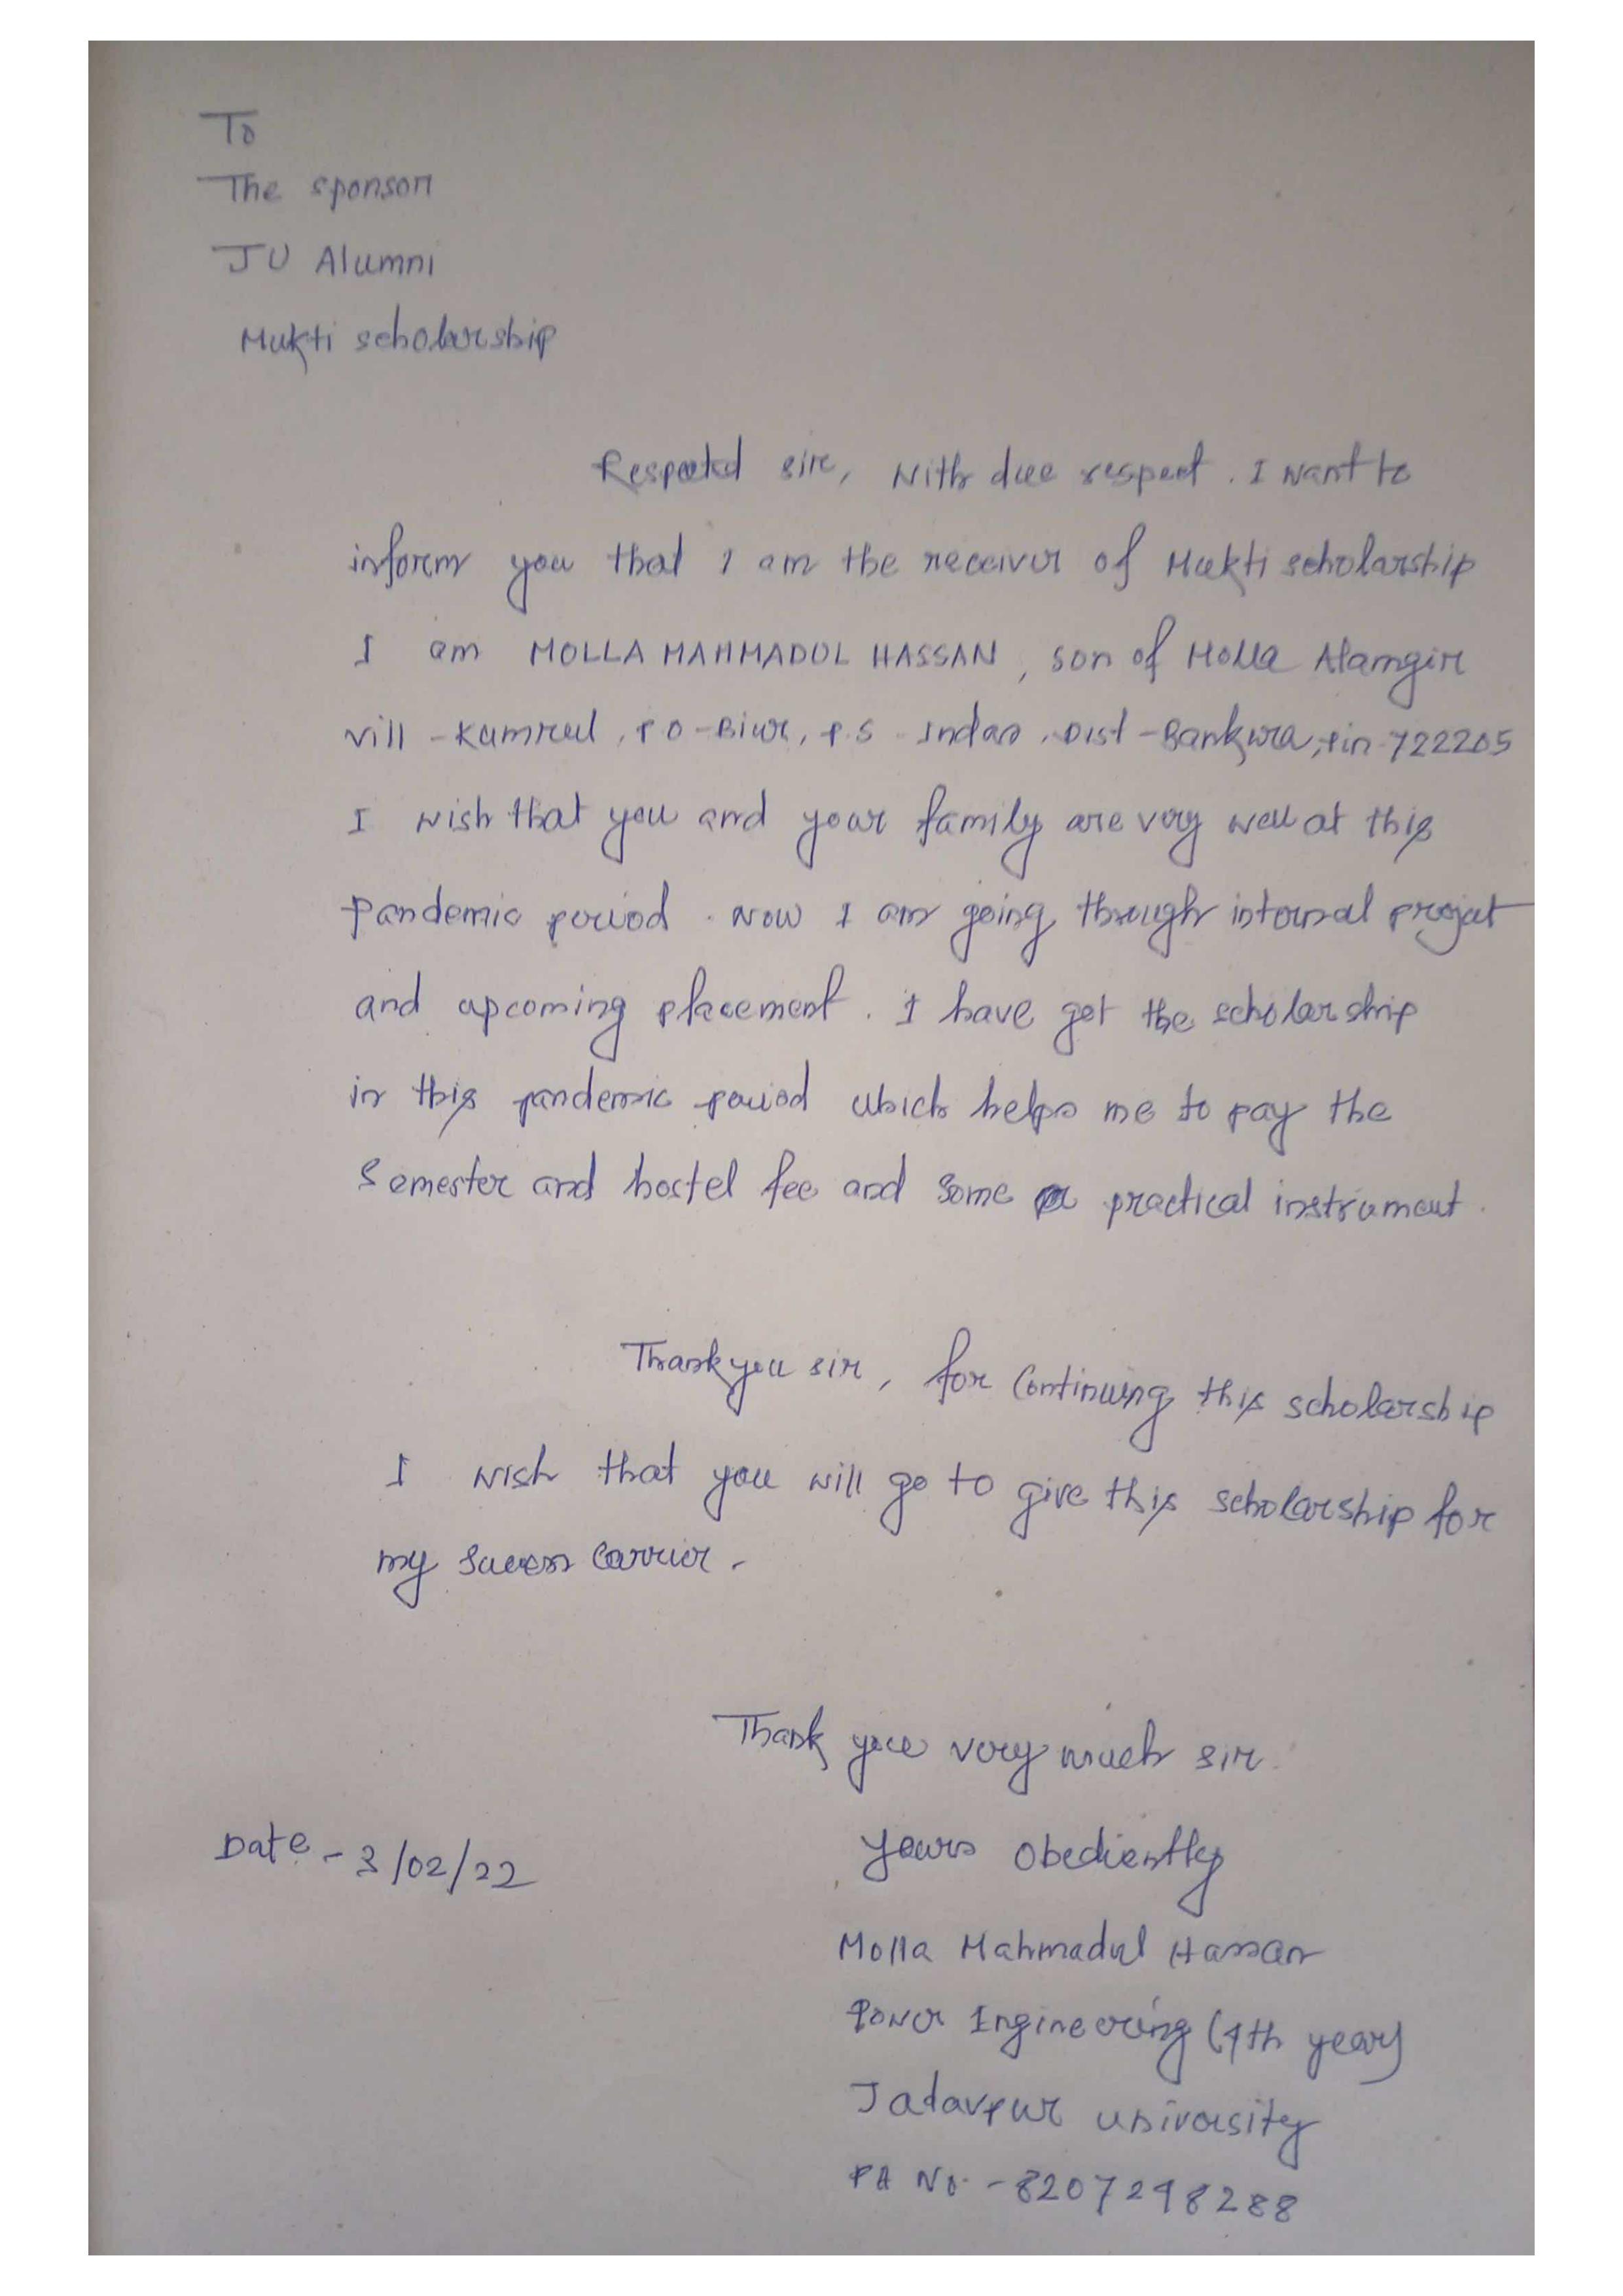 To
The sponsor
JU Alumni
Mukti scholarship
Respected sir, With due respect. I want to
inform you that I am the receiver of Mukti scholarship
I am MOLLA MAHMADUL HASSAN, son of Molla Alamgir
vill - Kumrul, P.O - Biur, P.S - Indas, Dist - Bankura, Pin - 722205
I wish that you and your family are very well at this
pandemic period. Now I am going through internal project
and upcoming placement. I have got the scholarship
in this pandemic period which helps me to pay the
Semester and hostel fee and some practical instrument.
Thank you sir, for Continuing this scholarship
I wish that you will go to give this scholarship for
my Success Carrier.
Thank you very much sir.
Date - 3/02/22
Yours Obediently
Molla Mahmadul Hassan
Power Engineering (4th year)
Jadavpur university
PH No. - 8207298288